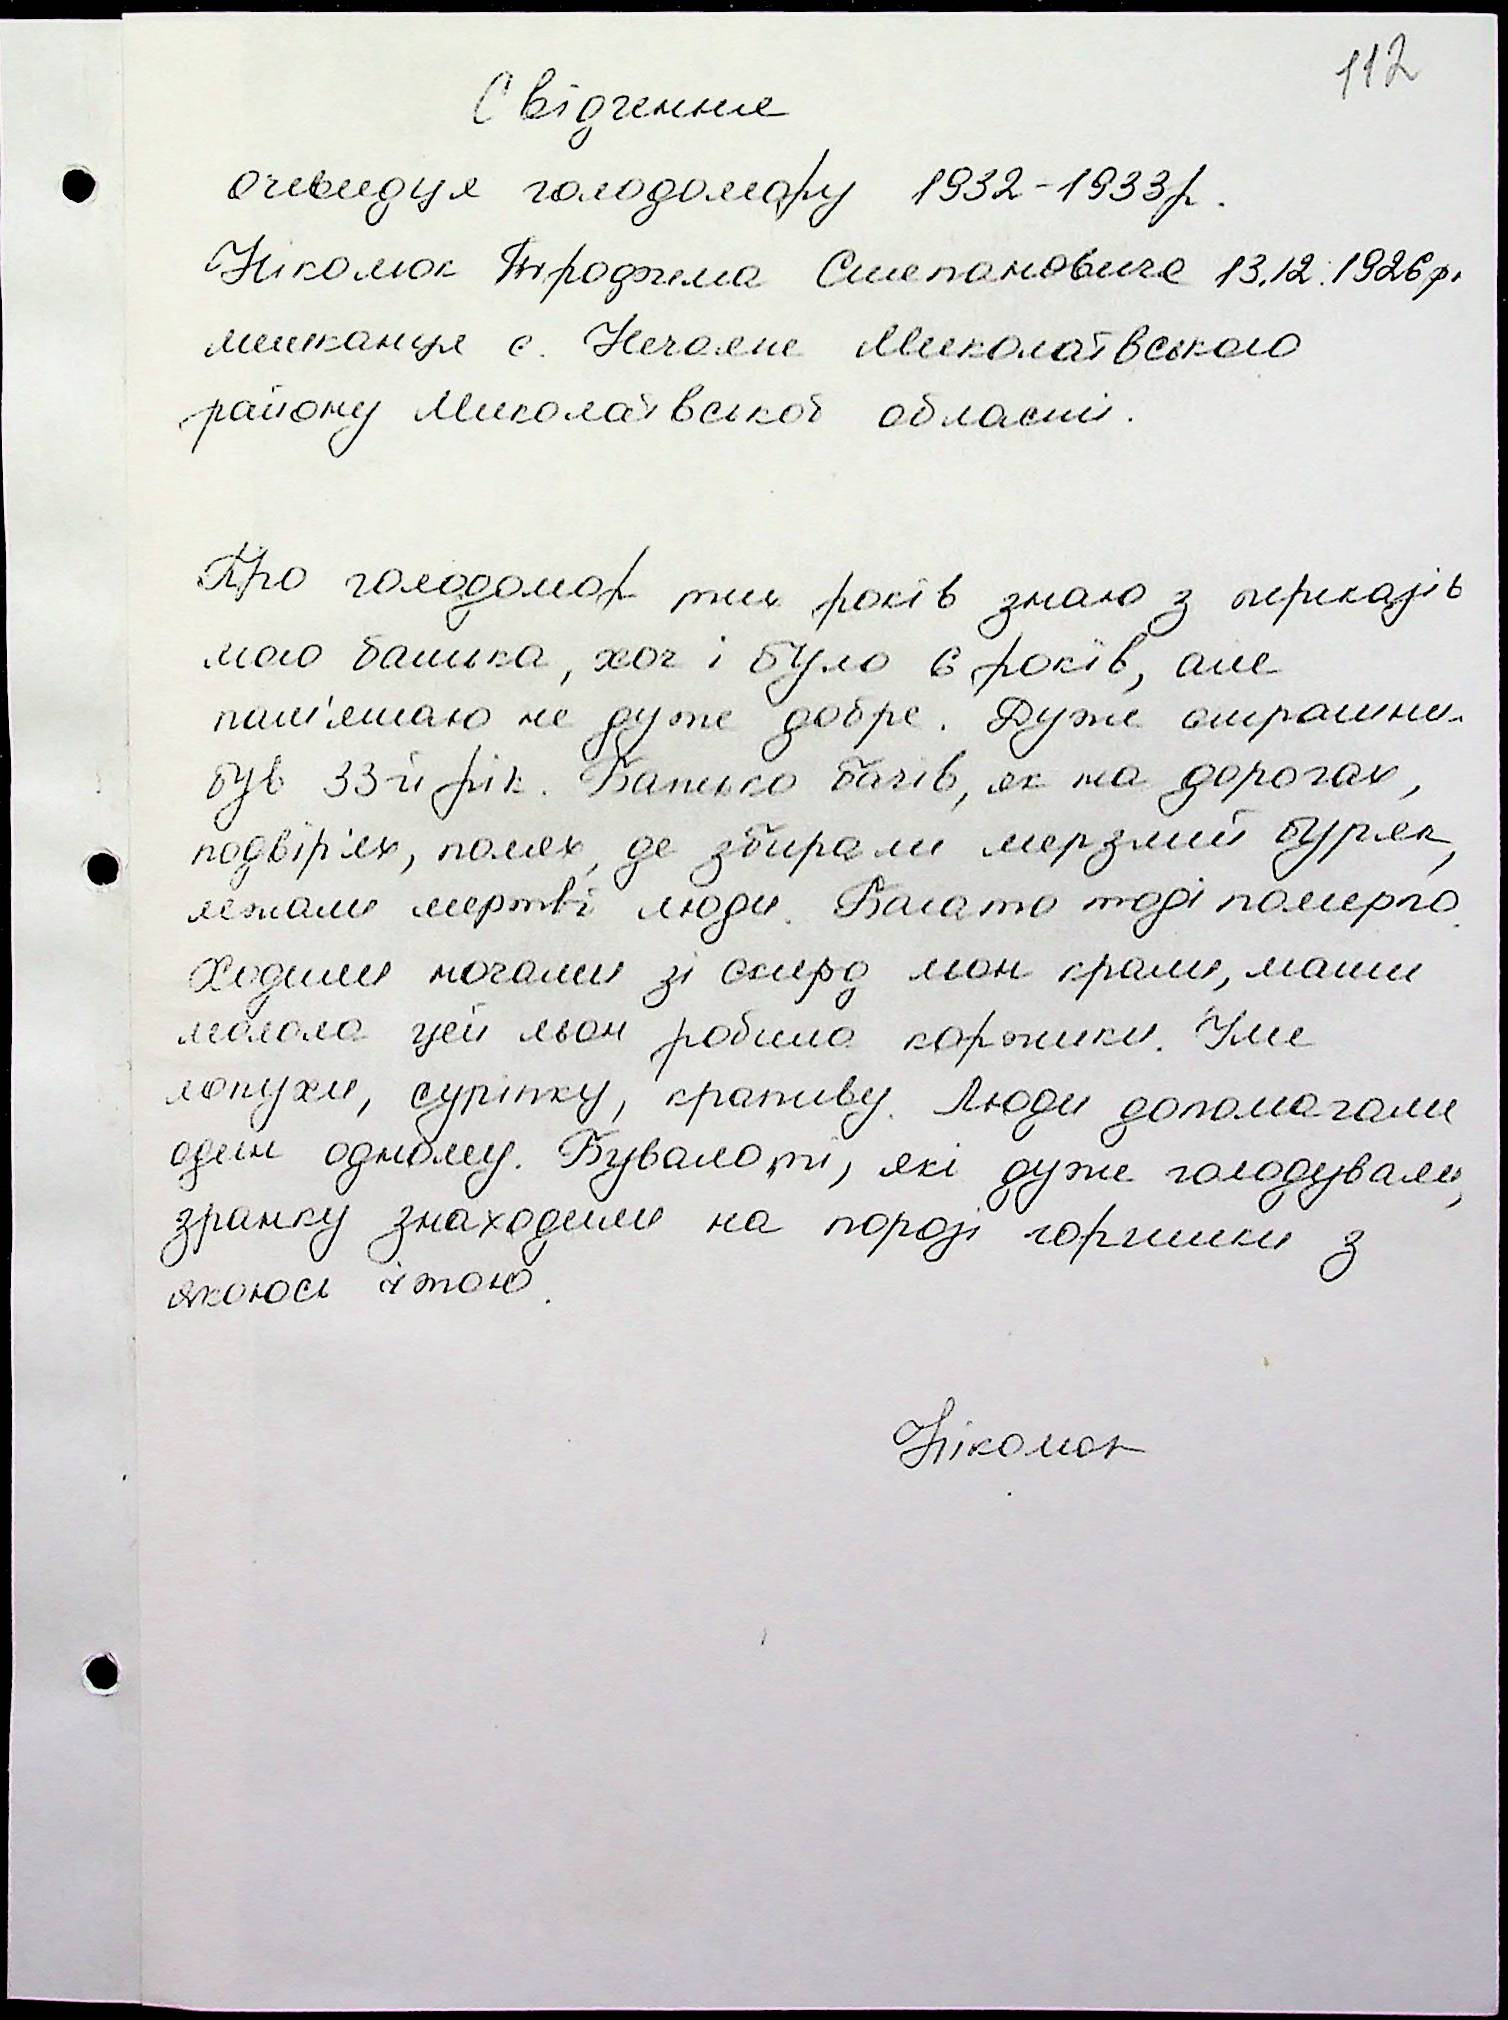 112
Свідчення
очевидця голодомору 1932-1933р.
Ніколюк Трофима Степановича 13.12.1926р.
мешканця с. Нечаяне Миколаївського
району Миколаївської області.
Про голодомор тих років знаю з переказів
мого батька, хоч і було 6 років, але
пам'ятаю не дуже добре. Дуже страшним
був 33-й рік. Батько бачів, як на дорогах,
подвір'ях, полях, де збирали мерзлий буряк,
лежали мертві люди. Багато тоді померло.
Ходили ночами зі скирд льон крали, мати
молола цей льон робила коржики. Їли
лопухи, суріпку, крапиву. Люди допомагали
один одному. Бувало ті, які дуже голодували,
зранку знаходили на порозі горшики з
якоюсь їжою.
Ніколюк